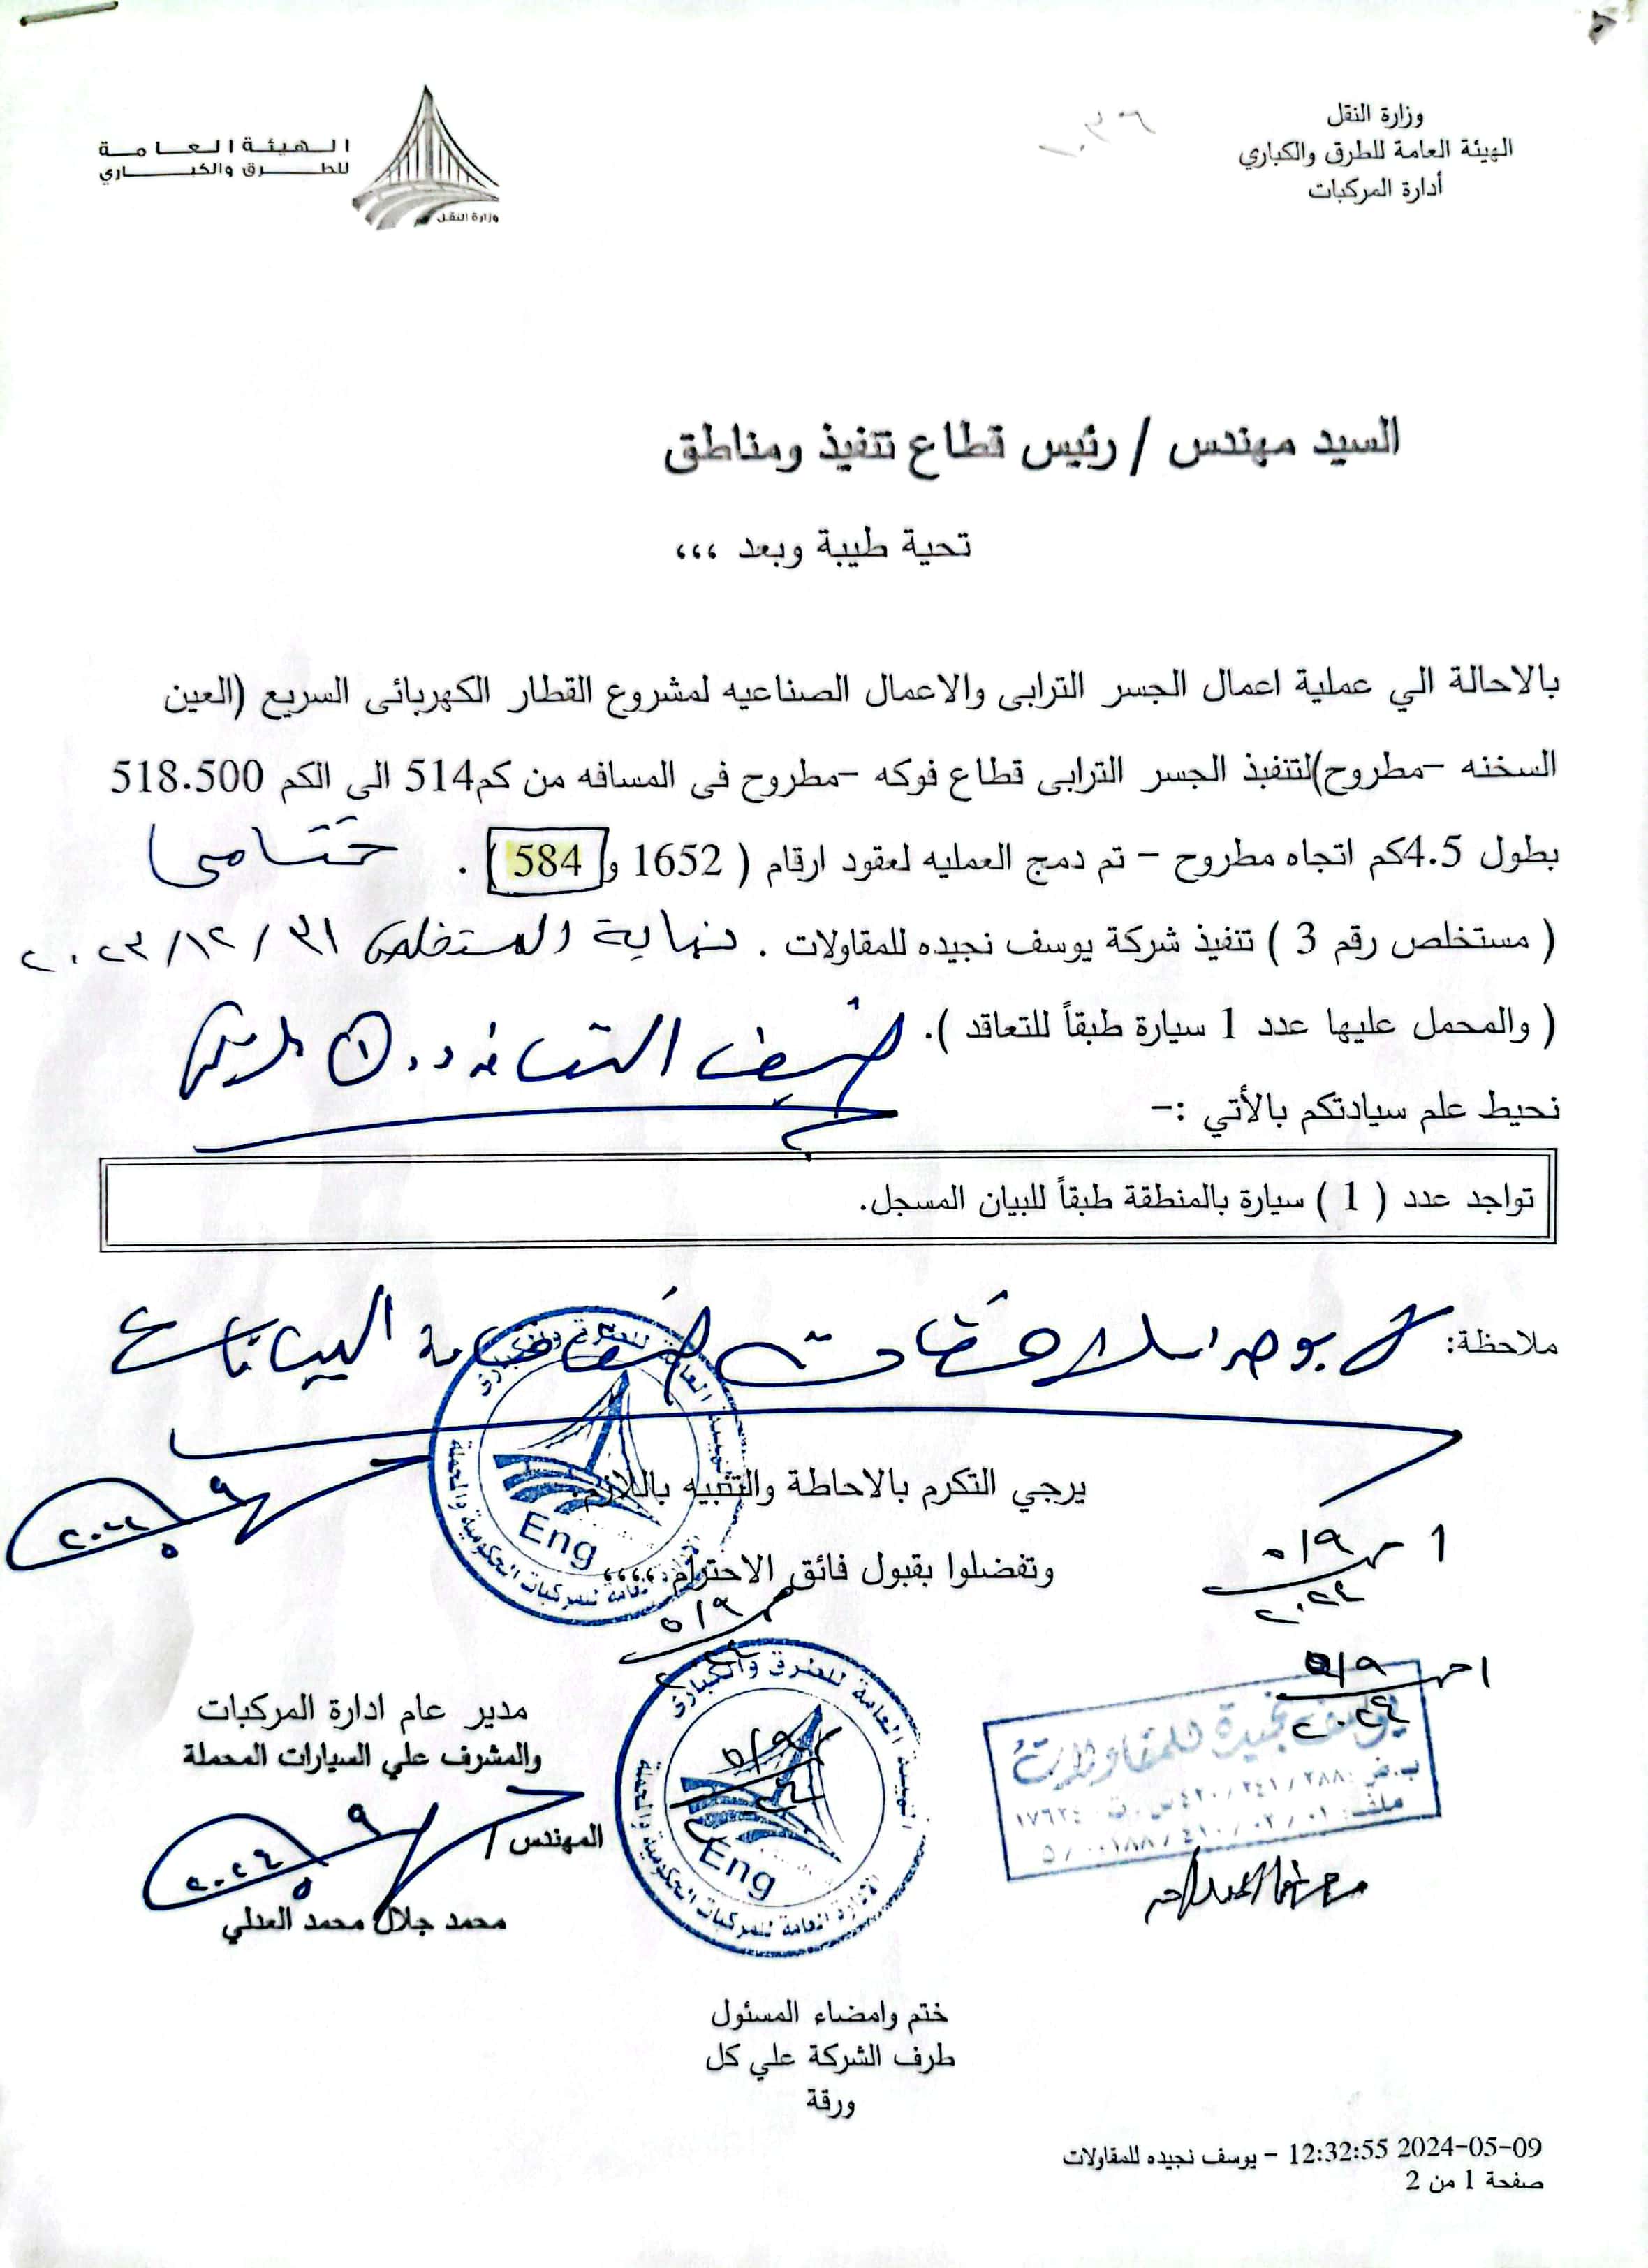 وزارة النقل
الهيئة العامة للطرق والكباري
أدارة المركبات
الهيئة العامة
للطرق والكباري
وزارة النقل
السيد مهندس / رئيس قطاع تتفيذ ومناطق
تحية طيبة وبعد ،،،
بالاحالة الي عملية اعمال الجسر الترابى والاعمال الصناعيه لمشروع القطار الكهربائى السريع (العين
السخنه -مطروح)لتنفيذ الجسر الترابى قطاع فوكه -مطروح فى المسافه من كم514 الى الكم 518.500
بطول 4.5كم اتجاه مطروح - تم دمج العمليه لعقود ارقام ( 1652 و 584 ) . ختامى
( مستخلص رقم 3 ) تنفيذ شركة يوسف نجيده للمقاولات . نهاية المستخلص ٣١ / ١٢ / ٢٠٢٣
( والمحمل عليها عدد 1 سيارة طبقاً للتعاقد ).
نحيط علم سيادتكم بالأتي :-
تواجد عدد ( 1 ) سيارة بالمنطقة طبقاً للبيان المسجل.
ملاحظة: لا يوجد
يرجي التكرم بالاحاطة والتنبيه باللازم.
وتفضلوا بقبول فائق الاحترام ،،،،،
٥/٩
٢٠٢٤
مدير عام ادارة المركبات
والمشرف علي السيارات المحملة
المهندس /
محمد جلال محمد العدلي
٩
٥
٢٠٢٤
الهيئة العامة للطرق والكبارى
الادارة العامة للمركبات الحكومية والمحملة
Eng
يوسف نجيدة للمقاولات
ختم وامضاء المسئول
طرف الشركة علي كل
ورقة
2024-05-09 12:32:55 - يوسف نجيده للمقاولات
صفحة 1 من 2